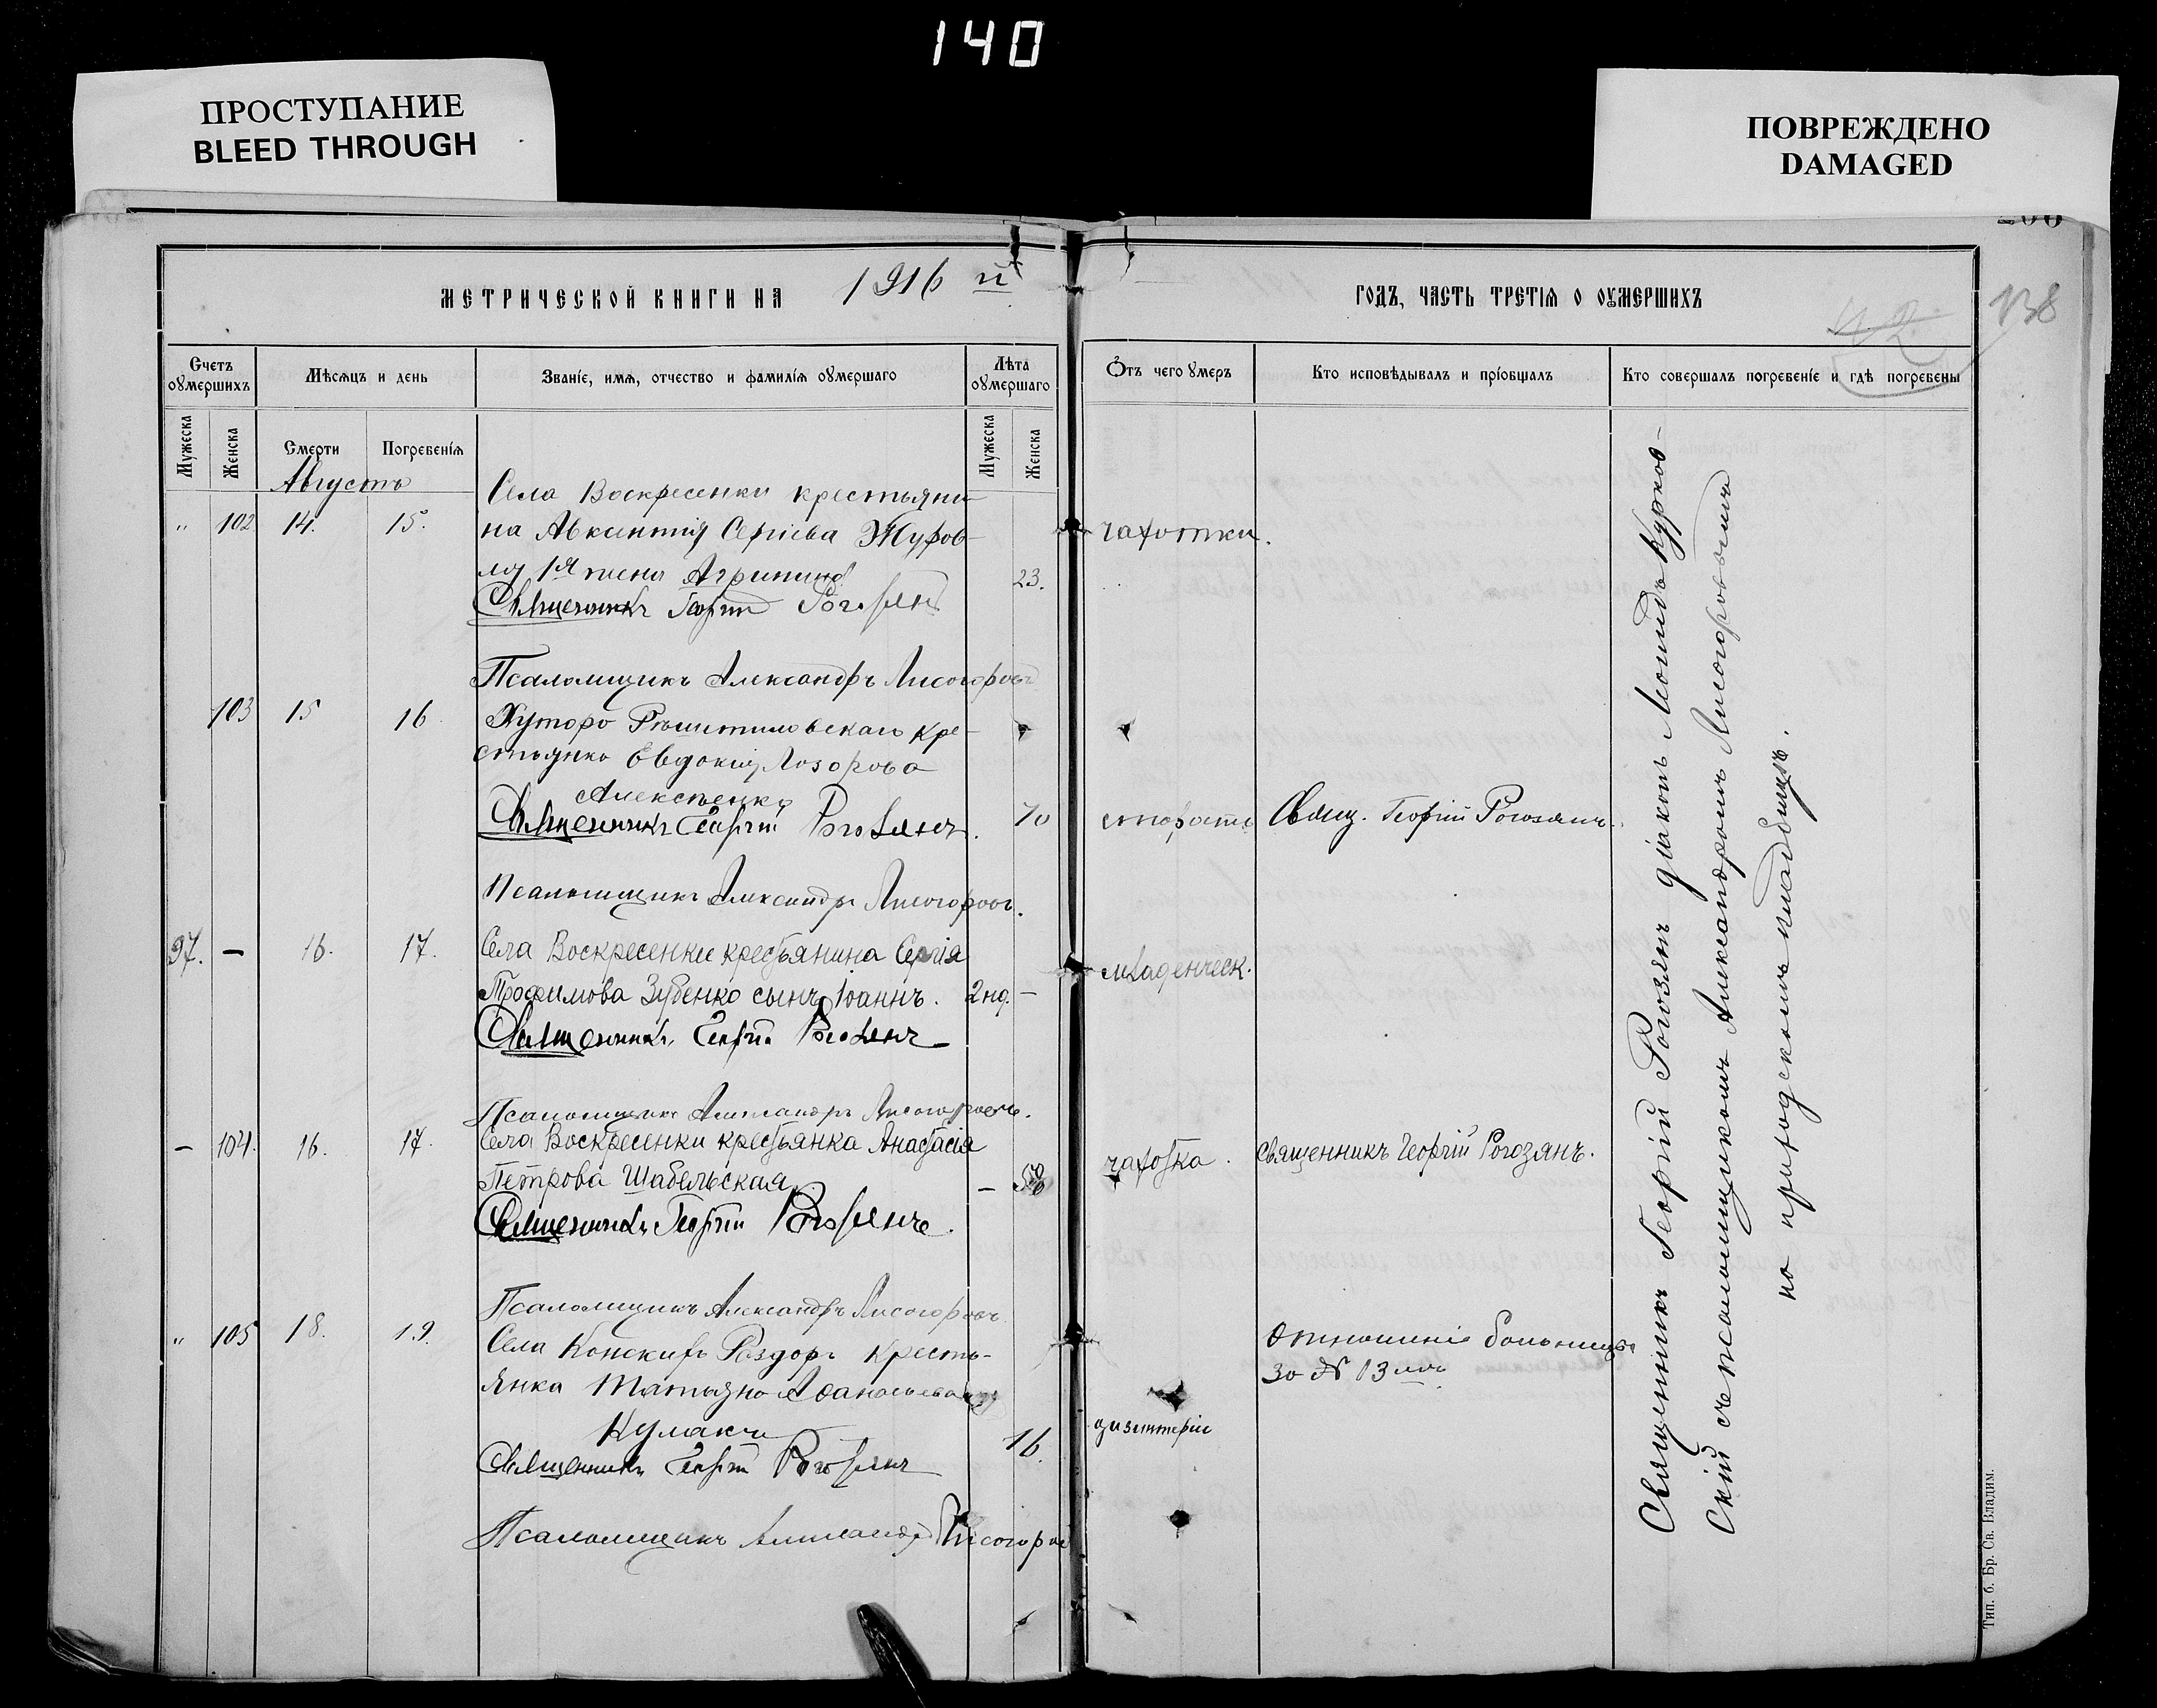 140
ПРОСТУПАНИЕ
BLEED THROUGH
ПОВРЕЖДЕНО
DAMAGED
МЕТРИЧЕСКОЙ КНИГИ НА 1916 й
ГОДЪ, ЧАСТЬ ТРЕТІЯ О ОУМЕРШИХЪ
138
Счетъ оумершихъ
Мѣсяцъ и день
Званіе, имя, отчество и фамилія оумершаго
Лѣта оумершаго
Отъ чего умеръ
Кто исповѣдывалъ и пріобщалъ
Кто совершалъ погребеніе и гдѣ погребены
Мужеска
Женска
Смерти
Погребенія
Мужеска
Женска
Августъ
Села Воскресенки крестьяни-
" 102 14. 15. на Авксентія Сергіева Журов-
1я жена Агрипина 23. чахотки.
Священникъ Георгій Рогозянъ
Псаломщикъ Александръ Лисогоровъ
103 15 16 Хутора кре-
стьянка Евдокия Лазорова
Алексеенко
Священникъ Георгій Рогозянъ. 70 старости Свящ. Георгій Рогозянъ.
Псаломщикъ Александръ Лисогоровъ.
97. — 16. 17. Села Воскресенки крестьянина Сергія
Трофимова Зубенко сынъ Іоаннъ. 2 нд. — младенческ.
Священникъ Георгій Рогозянъ
Псаломщикъ Александръ Лисогоровъ.
— 104. 16. 17. Села Воскресенки крестьянка Анастасія
Петрова Шабельская. — чахотка. Священникъ Георгій Рогозянъ.
Священникъ Георгій Рогозянъ.
Псаломщикъ Александръ Лисогоровъ
" 105 18. 19. Села Конскихъ Раздоръ кресть-
янка Татьяна Афанасьева
Отношеніе больницы
за № 13
16. дизентеріи
Священникъ Георгій Рогозянъ
Псаломщикъ Александръ Лисогоровъ
Священникъ Георгій Рогозянъ діаконъ Леонидъ Курков-
скій съ псаломщикомъ Александромъ Лисогоровымъ
на приходскомъ кладбищѣ.
Тип. б. Бр. Св. Владим.